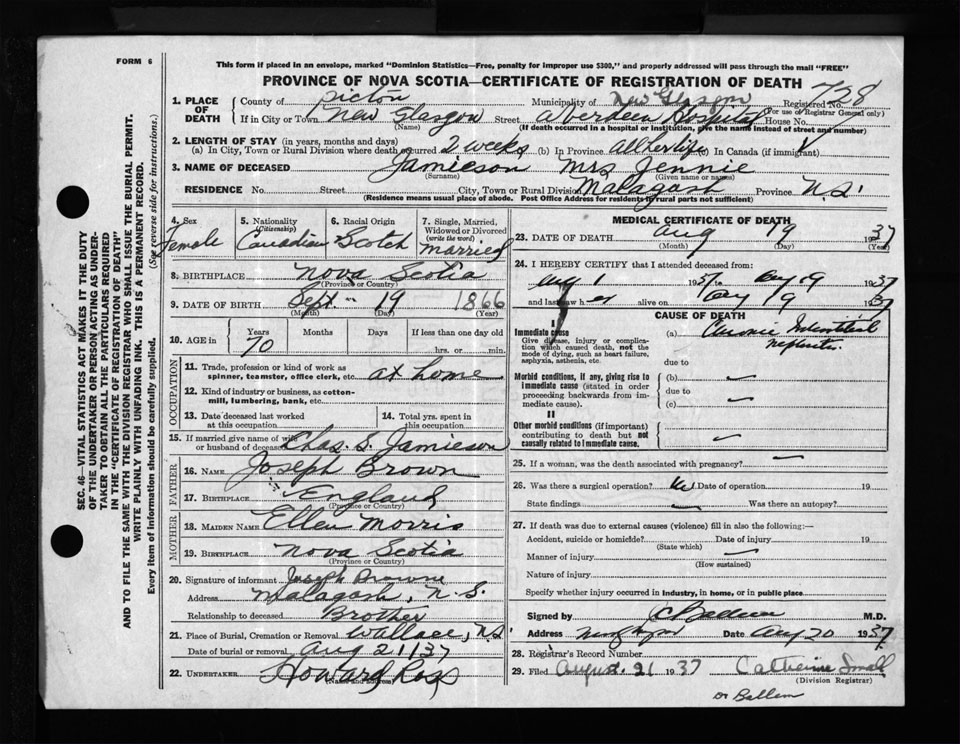 FORM 6
This form if placed in an envelope, marked "Dominion Statistics—Free, penalty for improper use $300," and properly addressed will pass through the mail "FREE"
PROVINCE OF NOVA SCOTIA—CERTIFICATE OF REGISTRATION OF DEATH
1. PLACE OF DEATH
County of Pictou Municipality of New Glasgow Registered No. 728
(For use of Registrar General only)
If in City or Town New Glasgow Street Aberdeen Hospital House No.
(Name) (If death occurred in a hospital or institution, give the name instead of street and number)
2. LENGTH OF STAY (in years, months and days)
(a) In City, Town or Rural Division where death occurred 2 weeks (b) In Province All her life (c) In Canada (if immigrant)
3. NAME OF DECEASED Jamieson Mrs Jennie
(Surname) (Given name or names)
RESIDENCE No. Street City, Town or Rural Division Malagash Province N.S.
(Residence means usual place of abode. Post Office Address for residents in rural parts not sufficient)
4. Sex Female
5. Nationality (Citizenship) Canadian
6. Racial Origin Scotch
7. Single, Married, Widowed or Divorced (write the word) Married
8. BIRTHPLACE Nova Scotia
(Province or Country)
9. DATE OF BIRTH Sept 19 1866
(Month) (Day) (Year)
10. AGE in Years Months Days If less than one day old
70 hrs. or min.
OCCUPATION
11. Trade, profession or kind of work as spinner, teamster, office clerk, etc. at home
12. Kind of industry or business, as cotton-mill, lumbering, bank, etc.
13. Date deceased last worked at this occupation
14. Total yrs. spent in this occupation
15. If married give name of wife or husband of deceased Chas. S. Jamieson
FATHER
16. NAME Joseph Brown
17. BIRTHPLACE England
(Province or Country)
MOTHER
18. MAIDEN NAME Ellen Morris
19. BIRTHPLACE Nova Scotia
(Province or Country)
20. Signature of informant Joseph Browne
Address Malagash, N.S.
Relationship to deceased Brother
21. Place of Burial, Cremation or Removal Wallace, N.S.
Date of burial or removal Aug 21/37
22. UNDERTAKER Howard Ross
(Name and address)
MEDICAL CERTIFICATE OF DEATH
23. DATE OF DEATH Aug 19 1937
(Month) (Day) (Year)
24. I HEREBY CERTIFY that I attended deceased from:
Aug 1 1937 to Aug 19 1937
and last saw her alive on Aug 19 1937
CAUSE OF DEATH
I
Immediate cause
Give disease, injury or complication which caused death, not the mode of dying, such as heart failure, asphyxia, asthenia, etc.
(a) Chronic Interstitial Nephritis
due to
Morbid conditions, if any, giving rise to immediate cause (stated in order proceeding backwards from immediate cause).
(b)
due to
(c)
II
Other morbid conditions (if important) contributing to death but not causally related to immediate cause.
25. If a woman, was the death associated with pregnancy?
26. Was there a surgical operation? Date of operation 19
State findings Was there an autopsy?
27. If death was due to external causes (violence) fill in also the following:—
Accident, suicide or homicide? Date of injury 19
(State which)
Manner of injury
(How sustained)
Nature of injury
Specify whether injury occurred in industry, in home, or in public place
Signed by C Ballem M.D.
Address New Glasgow Date Aug 20 1937
28. Registrar's Record Number
29. Filed August 21 1937 Catherine Small
(Division Registrar)
Dr Ballem
SEC. 46—VITAL STATISTICS ACT MAKES IT THE DUTY
OF THE UNDERTAKER OR PERSON ACTING AS UNDER-
TAKER TO OBTAIN ALL THE PARTICULARS REQUIRED
IN THE "CERTIFICATE OF REGISTRATION OF DEATH"
AND TO FILE THE SAME WITH THE DIVISION REGISTRAR WHO SHALL ISSUE THE BURIAL PERMIT.
WRITE PLAINLY WITH UNFADING INK. THIS IS A PERMANENT RECORD.
Every item of information should be carefully supplied. (See reverse side for instructions.)